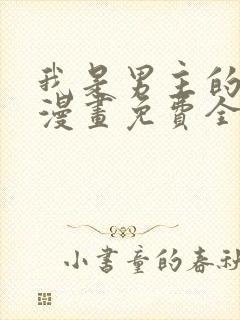 我是男主的
漫畫免費全
小書童的春秋